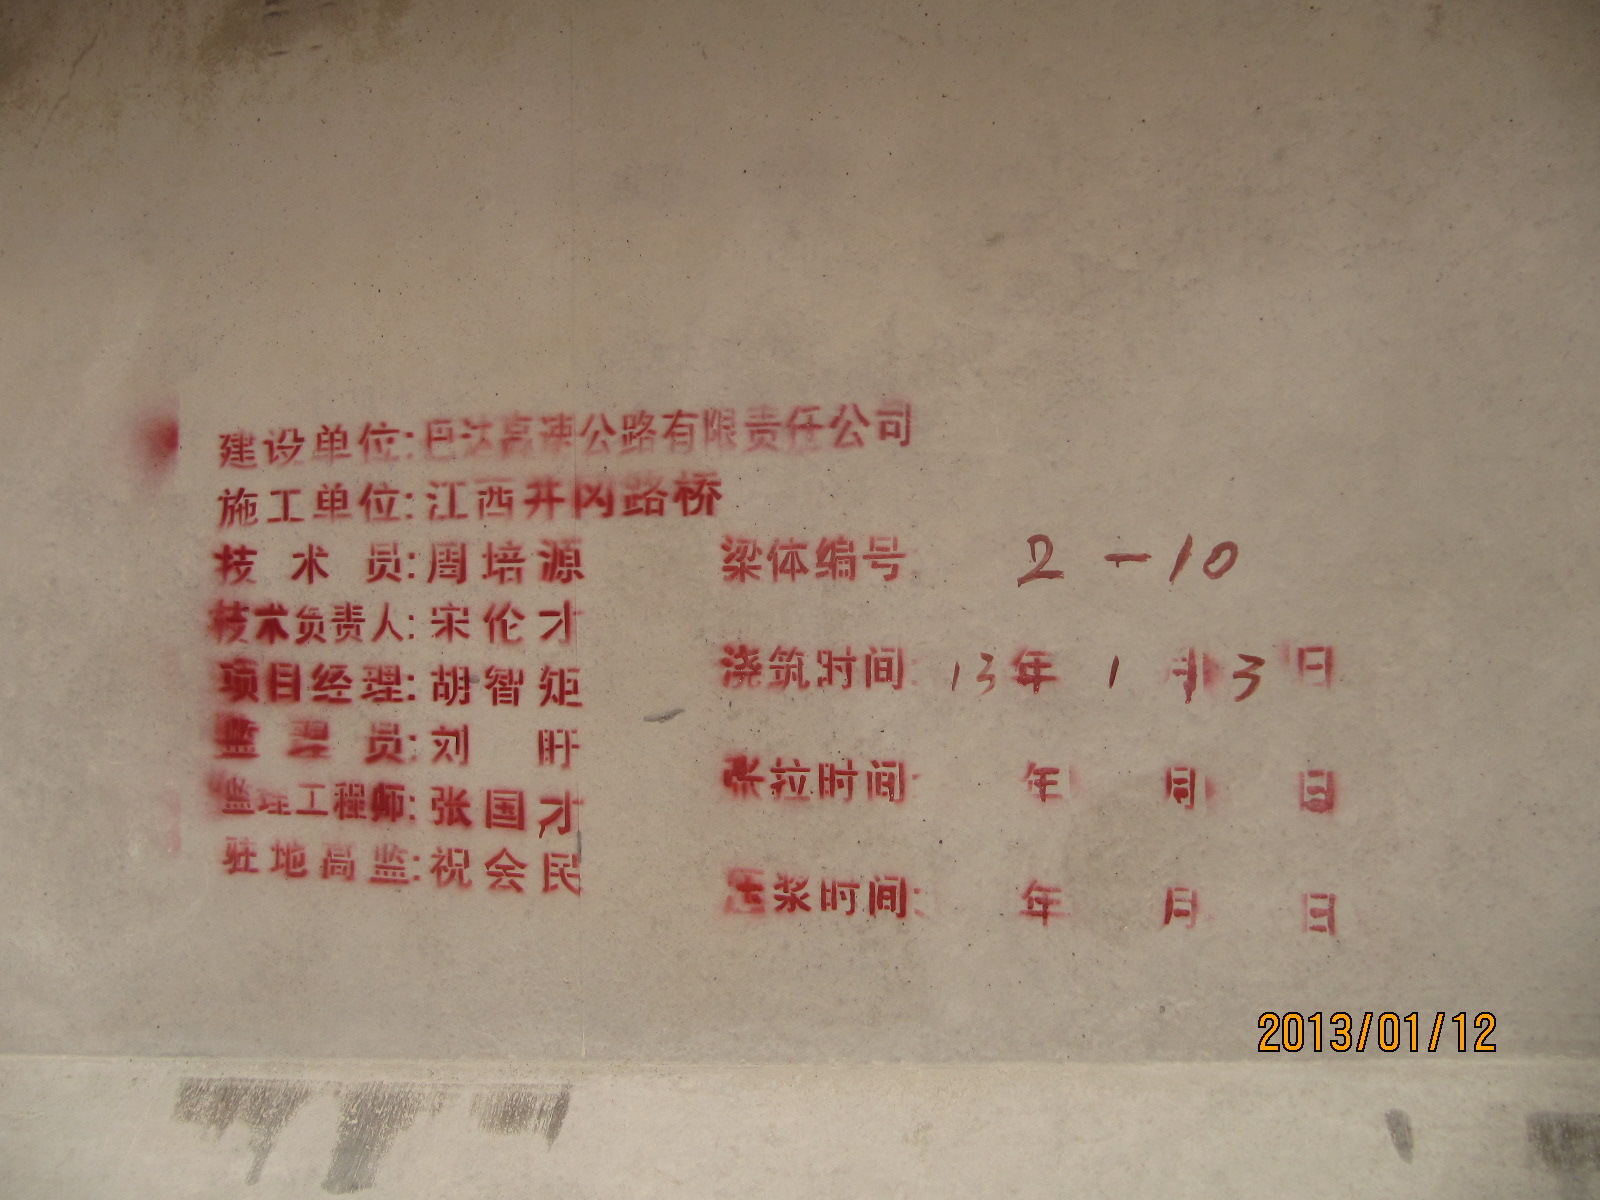 建设单位:巴达高速公路有限责任公司
施工单位:江西井冈路桥
技术员:周培源
技术负责人:宋伦才
项目经理:胡智矩
监理员:刘盱
监理工程师:张国才
驻地高监:祝会民
梁体编号: 2-10
浇筑时间: 13年1月3日
张拉时间: 年 月 日
压浆时间: 年 月 日
2013/01/12